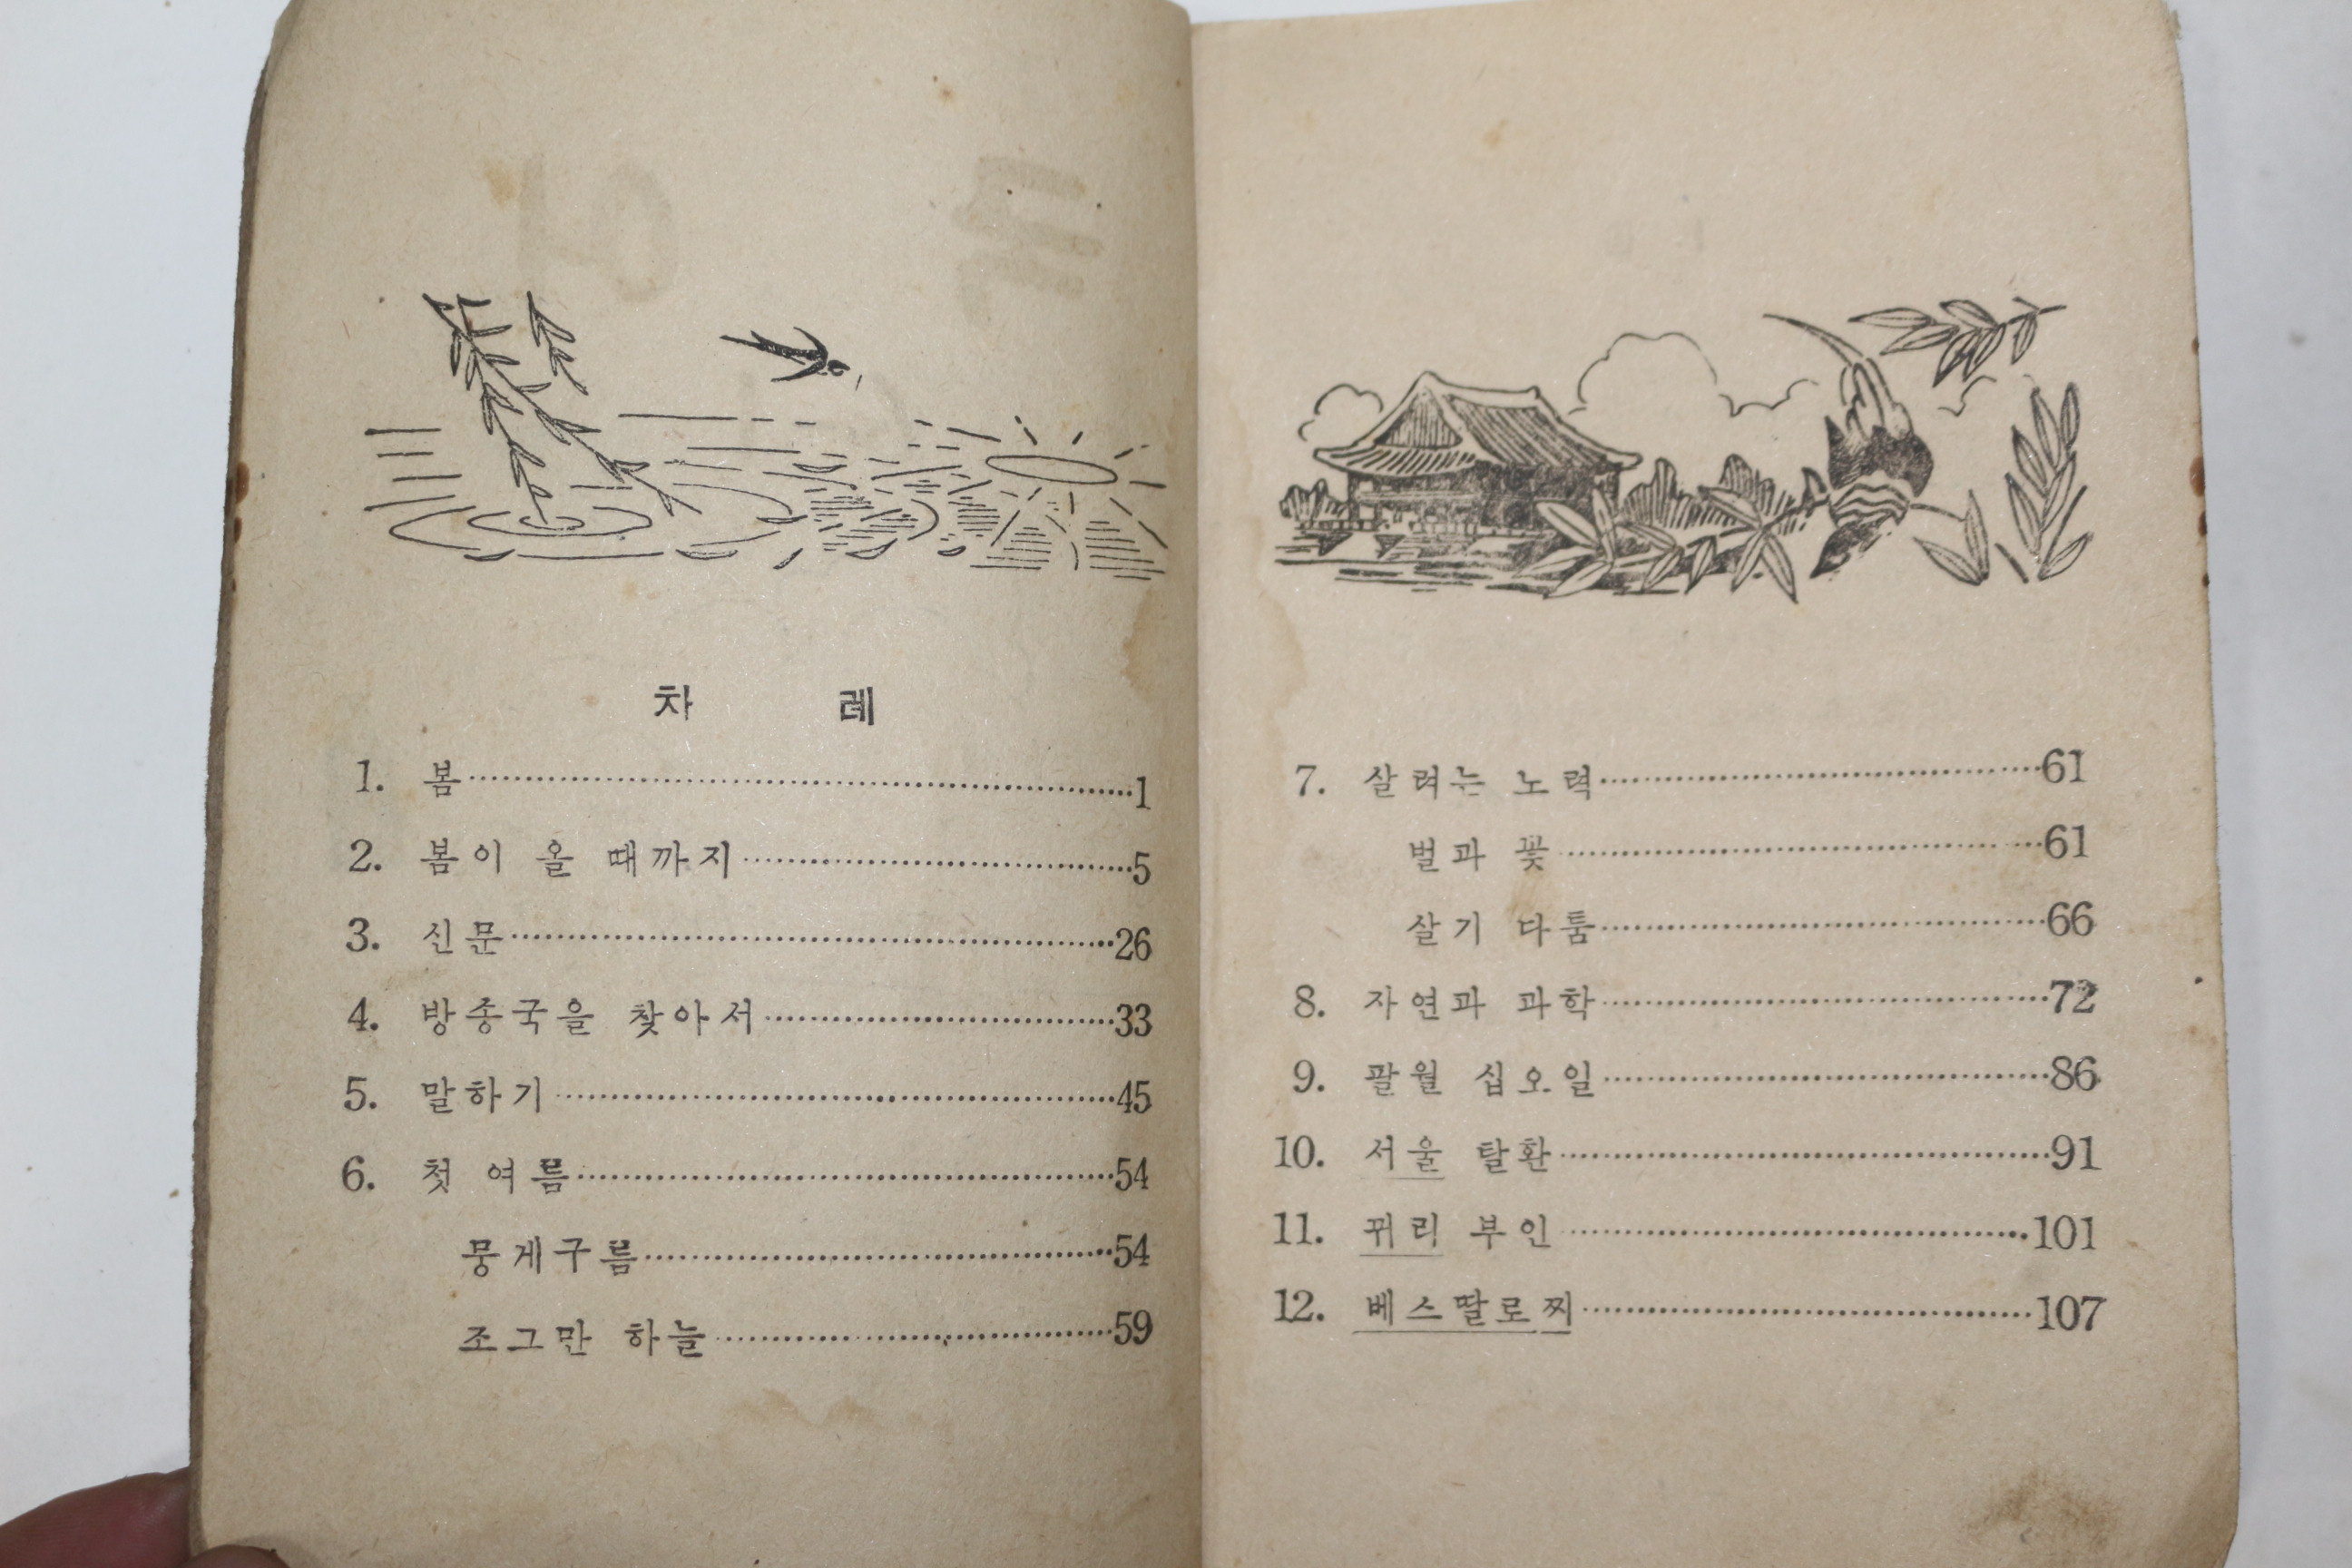 차 례
1. 봄 1
2. 봄이 올 때까지 5
3. 신문 26
4. 방송국을 찾아서 33
5. 말하기 45
6. 첫 여름 54
뭉게구름 54
조그만 하늘 59
7. 살려는 노력 61
벌과 꽃 61
살기 다툼 66
8. 자연과 과학 72
9. 팔월 십오일 86
10. 서울 탈환 91
11. 뀌리 부인 101
12. 베스딸로찌 107